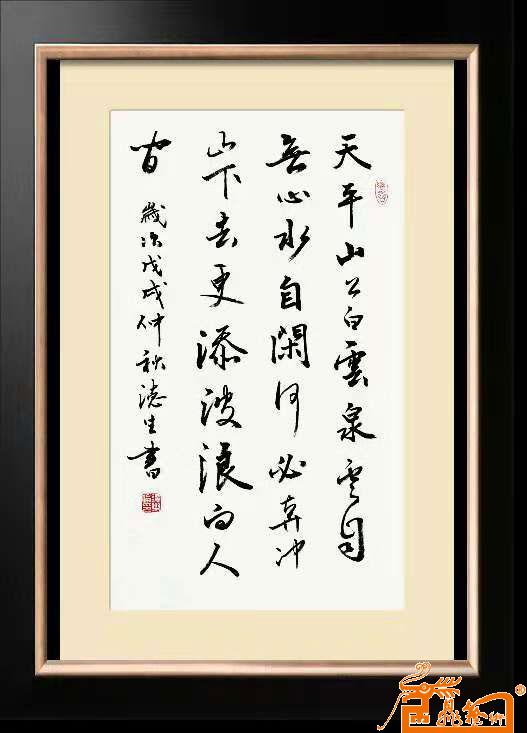 天平山上白雲泉雲自
無心水自閑何必奔冲
山下去更添波浪向人
間 歲次戊戌仲秋德生書